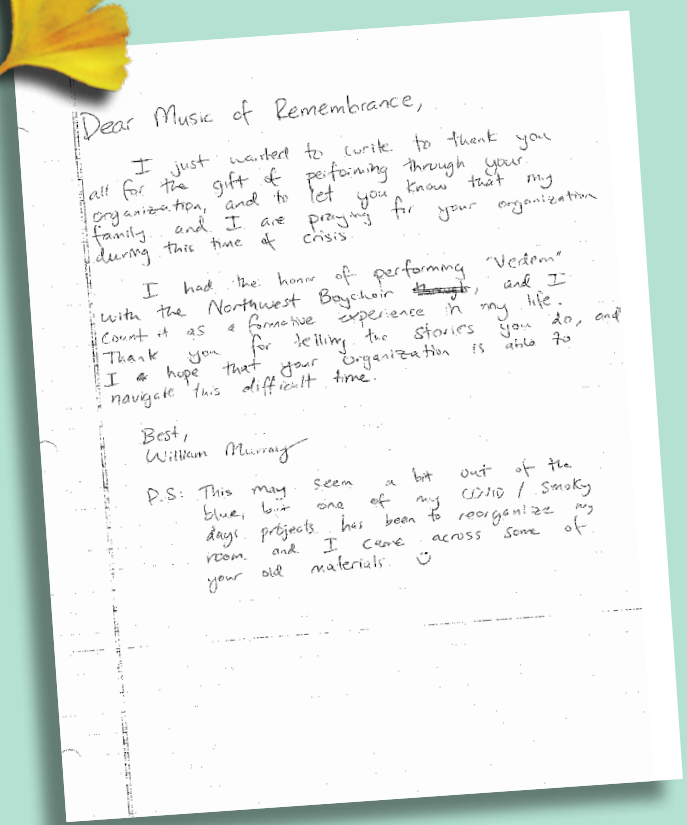 Dear Music of Remembrance,
I just wanted to write to thank you
all for the gift of performing through your
organization, and to let you know that my
family and I are praying for your organization
during this time of crisis.
I had the honor of performing "Vedem"
with the Northwest Boychoir, and I
count it as a formative experience in my life.
Thank you for telling the stories you do, and
I hope that your organization is able to
navigate this difficult time.
Best,
William Murray
P.S: This may seem a bit out of the
blue, but one of my COVID / smoky
days projects has been to reorganize my
room and I came across some of
your old materials. ☺